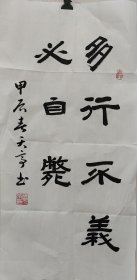 多行不義
必自斃
甲辰春天亭书